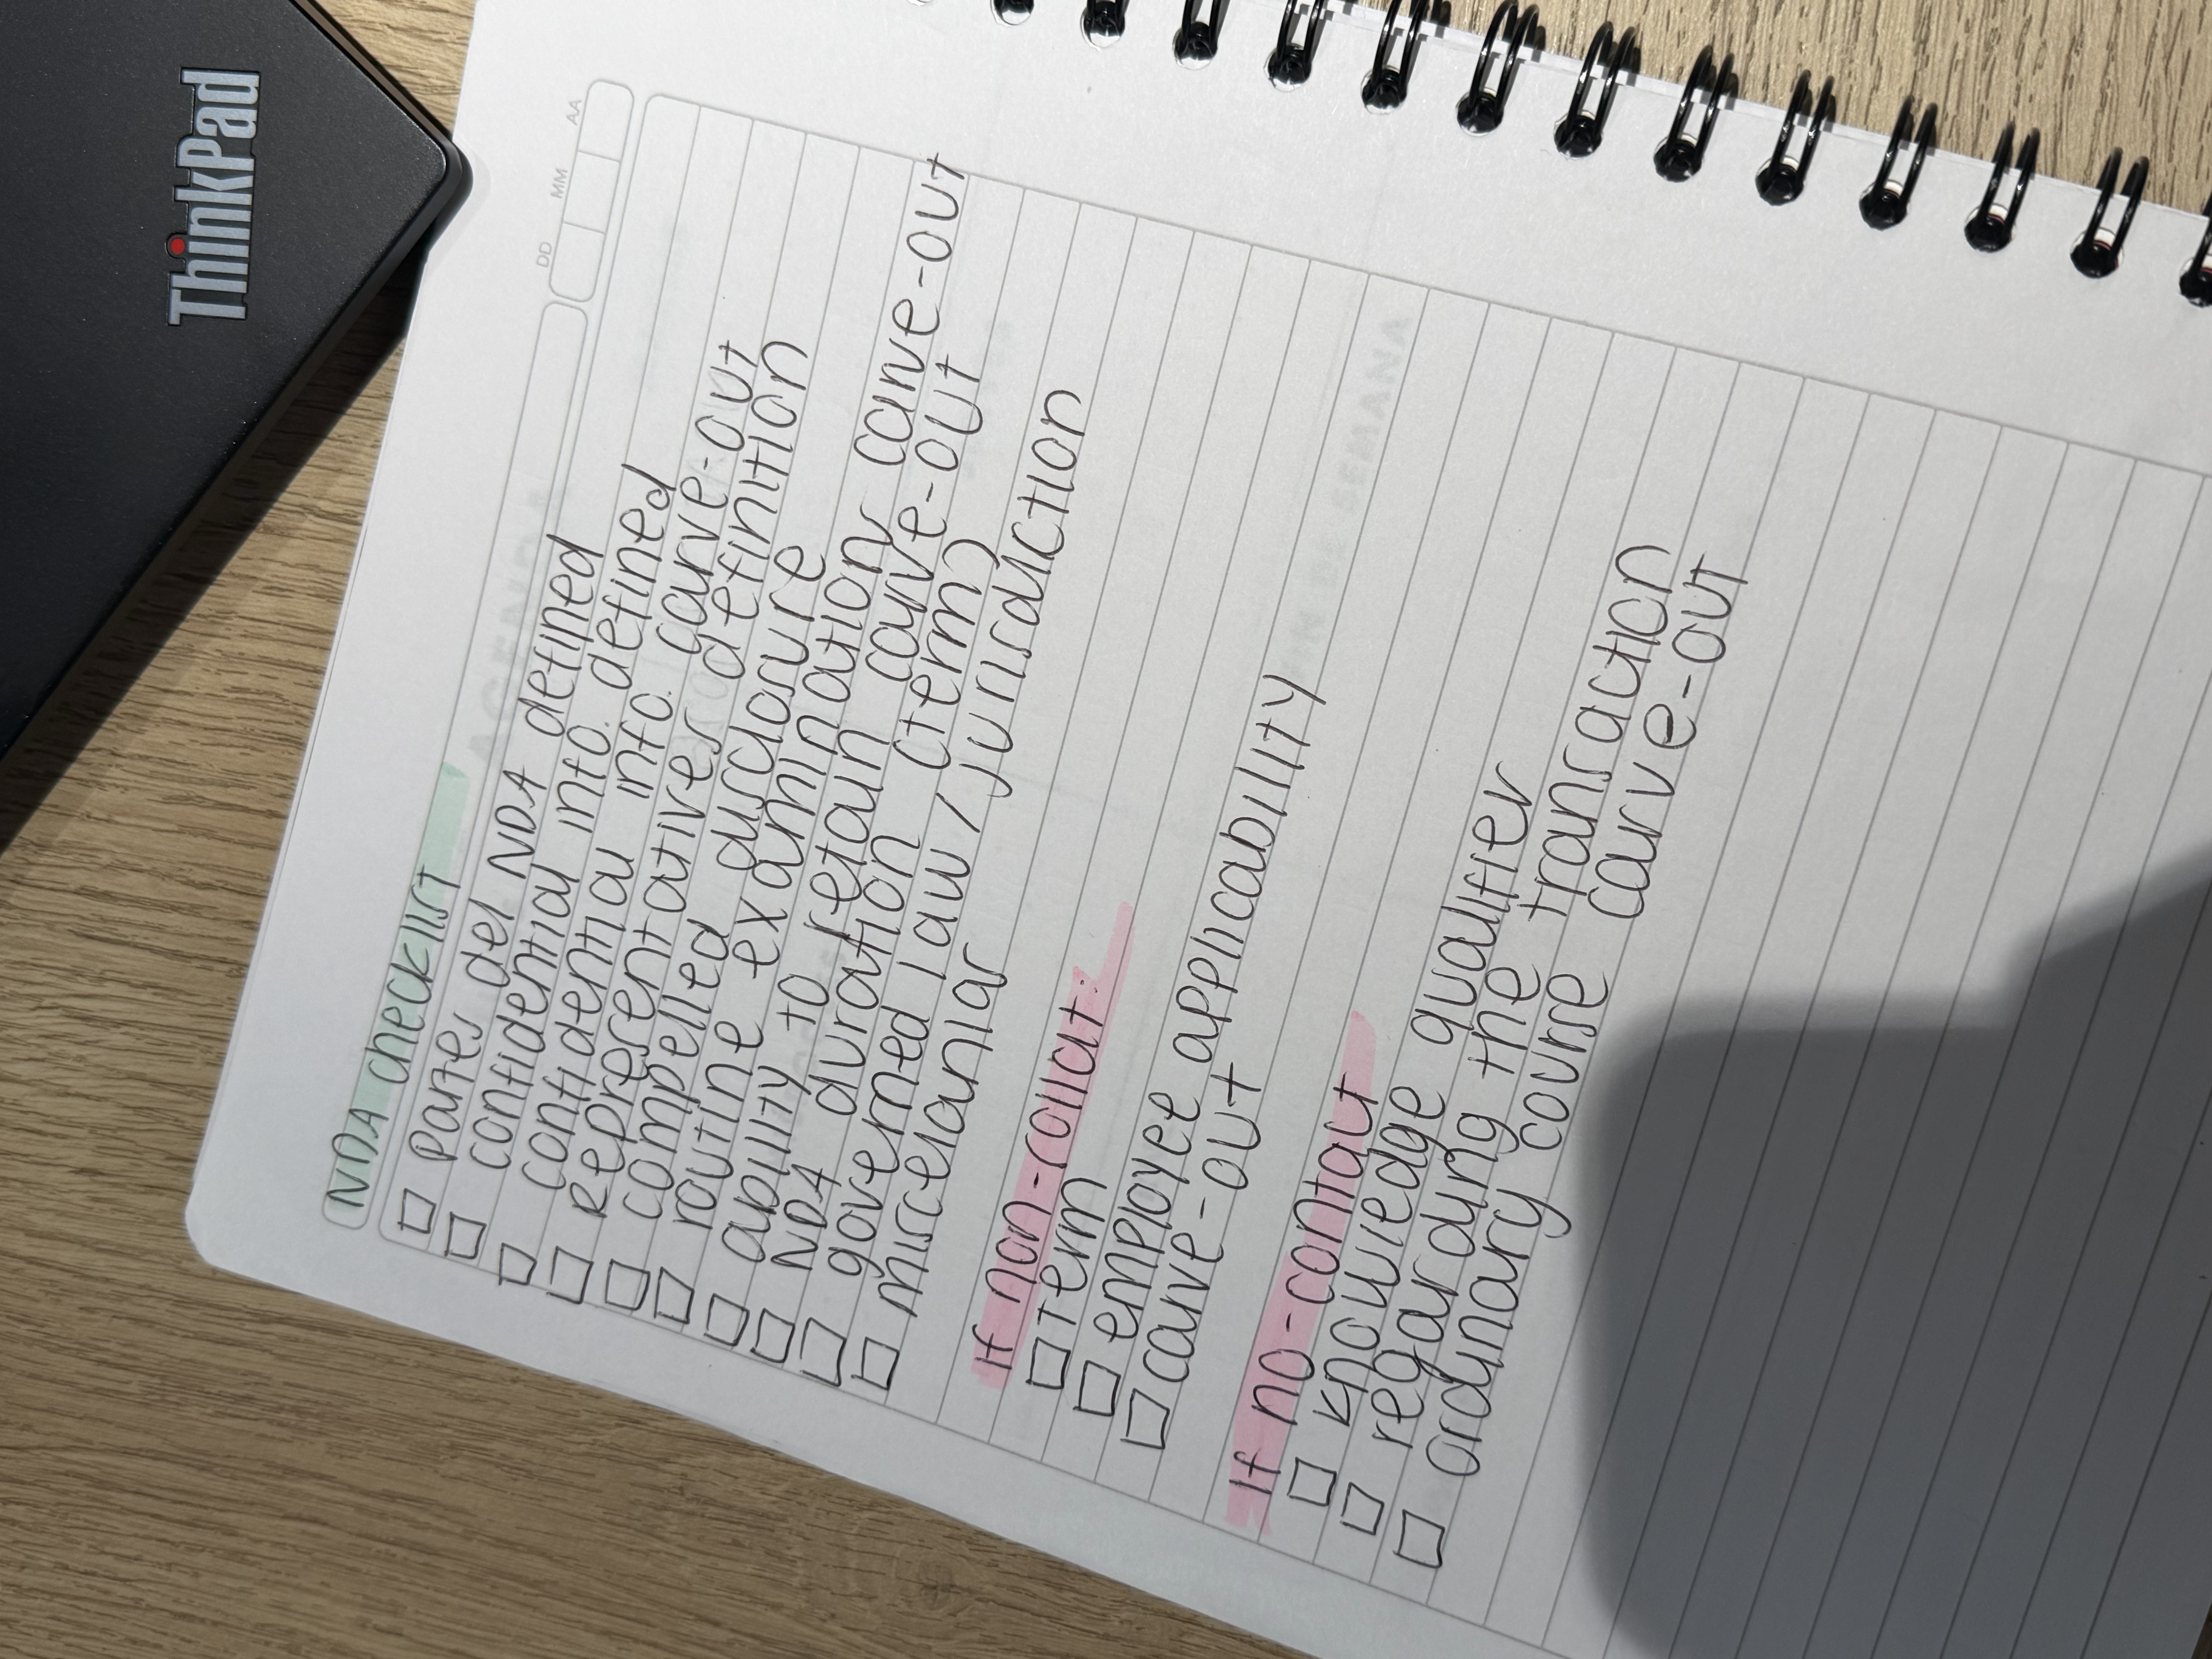 ThinkPad
DD MM AA
NDA checklist
□ Partes del NDA defined
□ confidential info. defined
□ confidential info. carve-out
□ Representatives definition
□ compelled disclosure
□ routine examination carve-out
□ ability to retain carve-out
□ NDA duration (term)
□ governed law / jurisdiction
□ miscelanias
If non-solicit:
□ Term
□ employee applicability
□ carve-out
If no-contact
□ knowledge qualifier
□ regarding the transaction
□ ordinary course carve-out